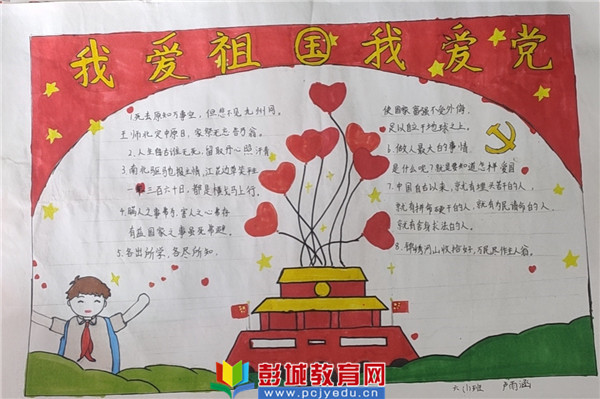 我爱祖国我爱党
1.死去原知万事空，但悲不见九州同。
王师北定中原日，家祭无忘告乃翁。
2.人生自古谁无死，留取丹心照汗青。
3.南北驱驰报主情，江花边草笑平生。
一年三百六十日，都是横戈马上行。
4.瞒人之事弗为，害人之心弗存
有益国家之事虽死弗避。
5.各出所学，各尽所知，
使国家富强不受外侮，
足以自立于地球之上。
6.做人最大的事情，
是什么呢？就是要知道怎样爱国
7.中国自古以来，就有埋头苦干的人，
就有拼命硬干的人，就有为民请命的人，
就有舍身求法的人。
8.锦绣河山收拾好，万民尽作主人翁。
彭城教育网
www.pcjyedu.cn